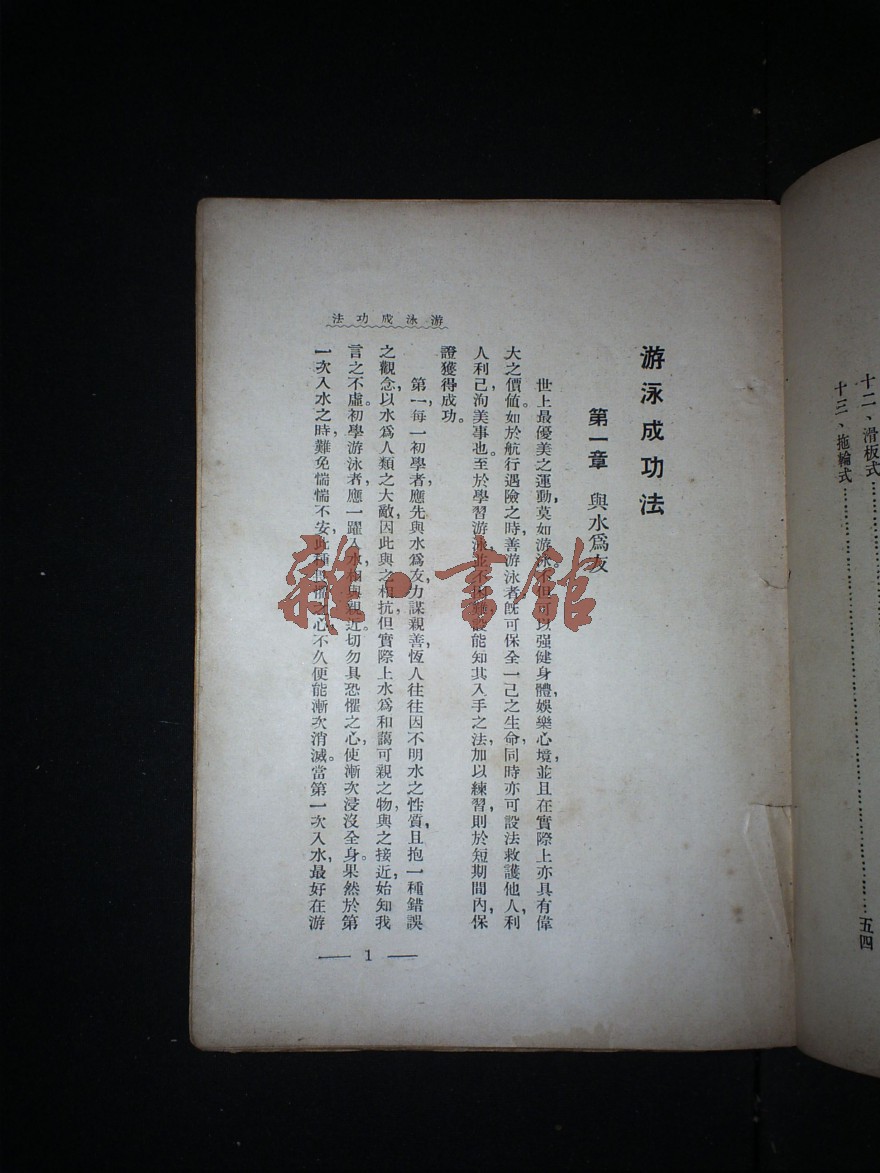 十二、滑板式
十三、拖輪式……………………五四
游泳成功法
游泳成功法
第一章 與水爲友
世上最優美之運動,莫如游泳。不但可以强健身體,娛樂心境,並且在實際上亦具有偉
大之價値。如於航行遇險之時,善游泳者旣可保全一己之生命,同時亦可設法救護他人,利
人利己,洵美事也。至於學習游泳,並不困難,設能知其入手之法,加以練習,則於短期間內,保
證獲得成功。
第一,每一初學者,應先與水爲友,力謀親善,恆人往往因不明水之性質,且抱一種錯誤
之觀念,以水爲人類之大敵,因此與之相抗,但實際上水爲和藹可親之物,與之接近,始知我
言之不虛。初學游泳者,應一躍入水,相與親近。切勿具恐懼之心,使漸次浸沒全身。果然於第
一次入水之時,難免惴惴不安,此種 之心,不久便能漸次消滅。當第一次入水,最好在游
1
雜·書館